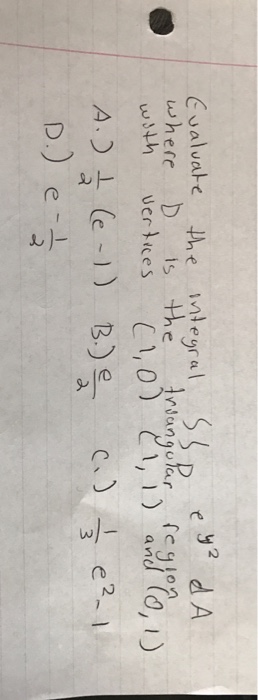 Evaluate the integral ∬_D e^{y²} dA
where D is the triangular region
with vertices (1,0) (1,1) and (0,1)
A.) 1/2 (e-1) B.) e/2 C.) 1/3 e²-1
D.) e-1/2